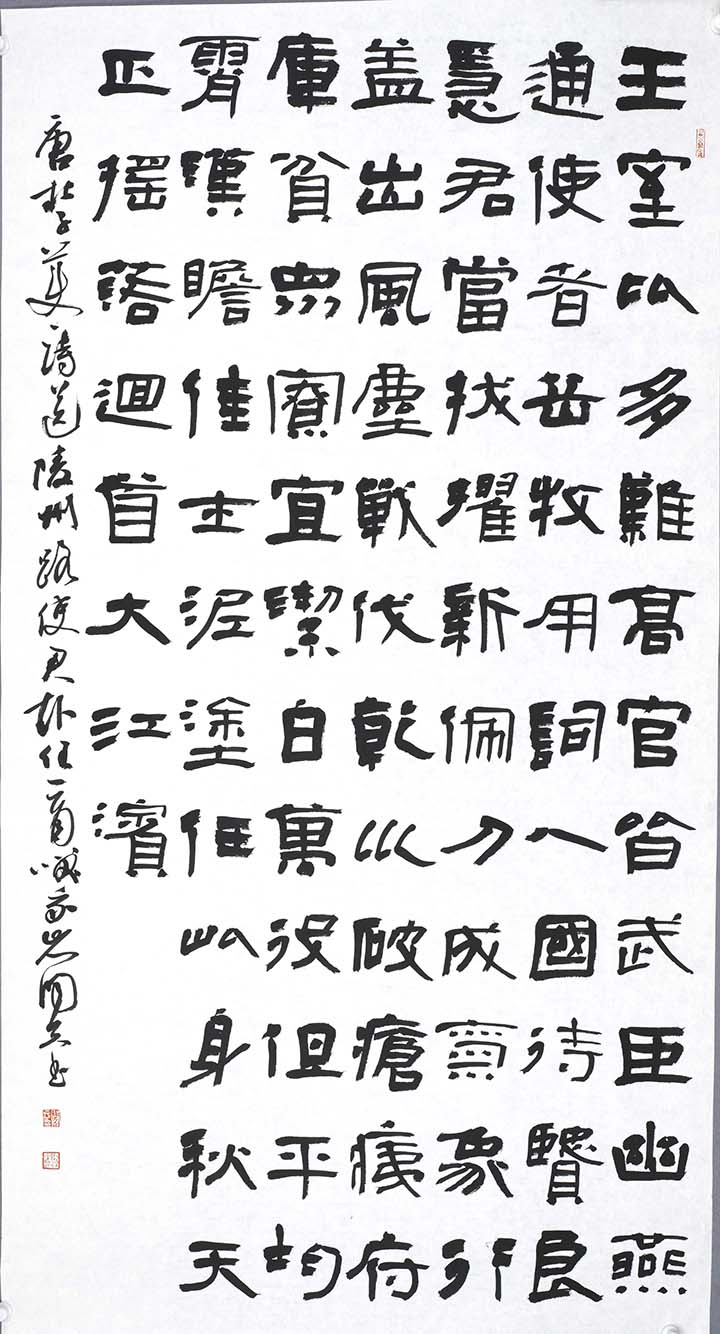 王室比多難高官皆武臣幽燕
通使者岳牧用詞人國待賢良
急君當拔擢新佩刀成氣象行
盖出風塵戰伐乾巛破瘡痍府
庫貧眾寮宜潔白萬役但平均
霄漢瞻佳士泥塗任此身秋天
正摇落迴首大江濱
唐杜子美詩送陵州路使君赴任一首